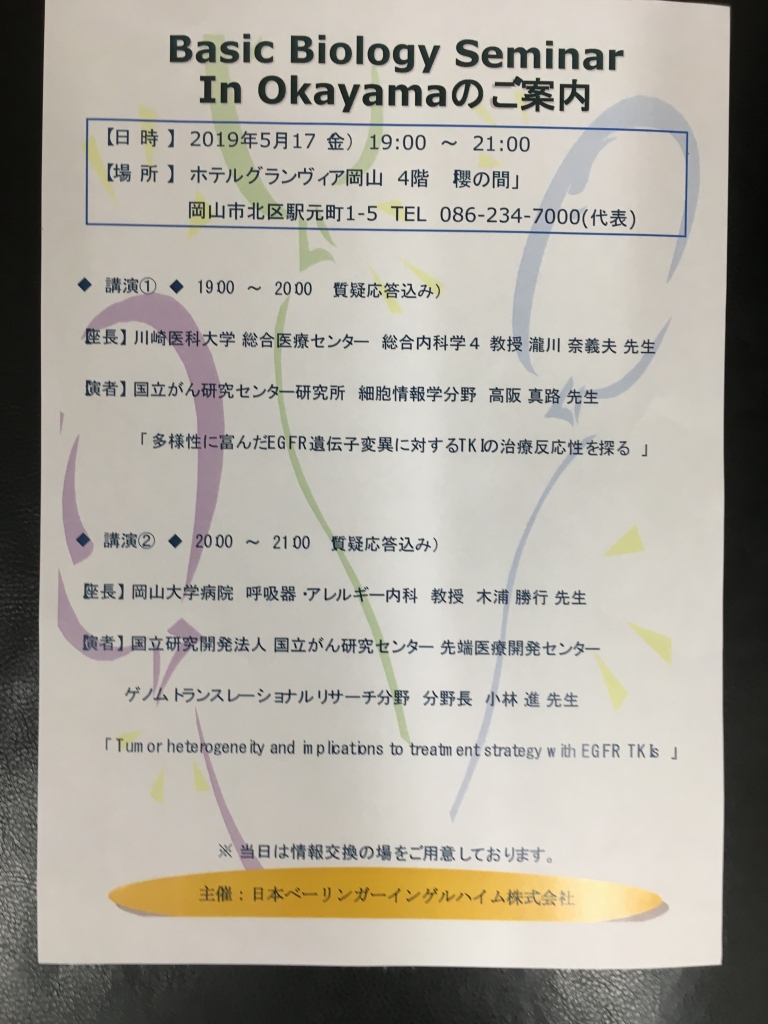 Basic Biology Seminar
In Okayamaのご案内
【日 時 】 2019年5月17 金） 19:00 ～ 21:00
【場 所 】 ホテルグランヴィア岡山 4階 櫻の間」
岡山市北区駅元町1-5 TEL 086-234-7000(代表)
◆ 講演① ◆ 19:00 ～ 20:00 質疑応答込み）
【座長】 川崎医科大学 総合医療センター 総合内科学４ 教授 瀧川 奈義夫 先生
【演者】 国立がん研究センター研究所 細胞情報学分野 高阪 真路 先生
「 多様性に富んだEGFR遺伝子変異に対するTKIの治療反応性を探る 」
◆ 講演② ◆ 20:00 ～ 21:00 質疑応答込み）
【座長】 岡山大学病院 呼吸器・アレルギー内科 教授 木浦 勝行 先生
【演者】 国立研究開発法人 国立がん研究センター 先端医療開発センター
ゲノムトランスレーショナルリサーチ分野 分野長 小林 進 先生
「 Tumor heterogeneity and implications to treatment strategy with EGFR TKIs 」
※ 当日は情報交換の場をご用意しております。
主催：日本ベーリンガーインゲルハイム株式会社